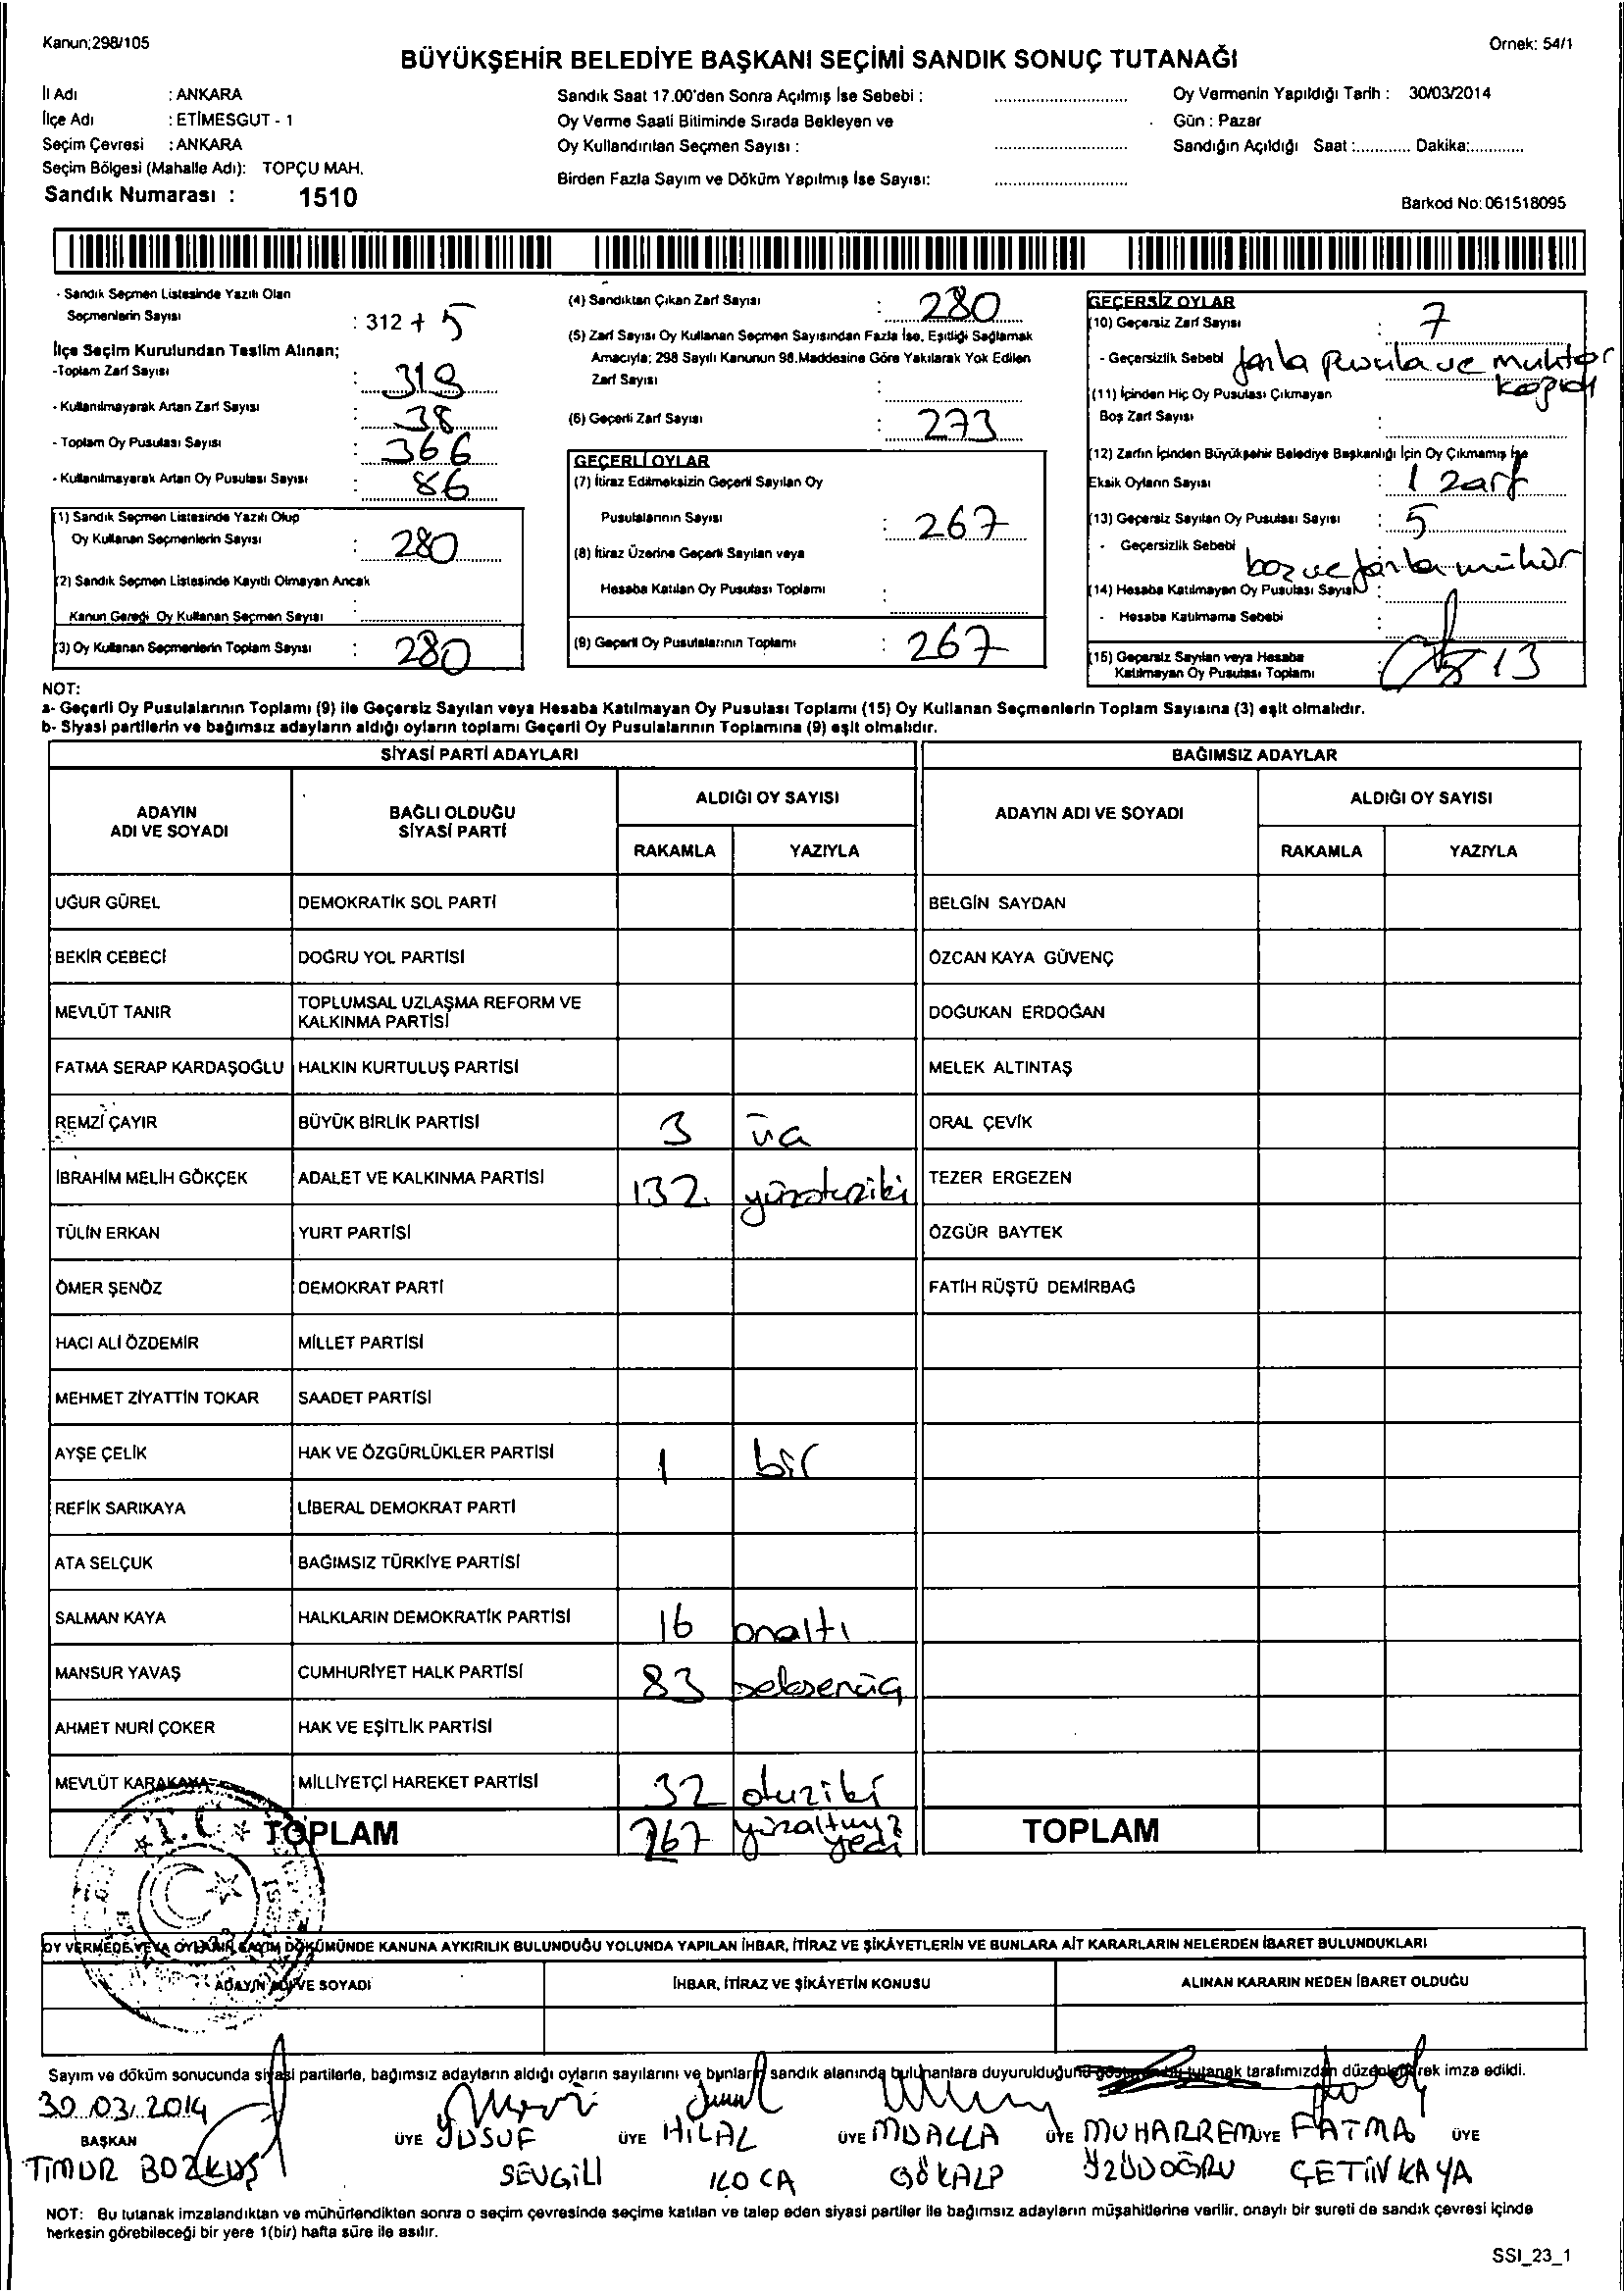 Kanun;298/105
Örnek: 54/1
BÜYÜKŞEHİR BELEDİYE BAŞKANI SEÇİMİ SANDIK SONUÇ TUTANAĞI
İl Adı : ANKARA
İlçe Adı : ETİMESGUT - 1
Seçim Çevresi : ANKARA
Seçim Bölgesi (Mahalle Adı): TOPÇU MAH.
Sandık Numarası : 1510
Sandık Saat 17.00'den Sonra Açılmış İse Sebebi :
Oy Verme Saati Bitiminde Sırada Bekleyen ve
Oy Kullandırılan Seçmen Sayısı :
Birden Fazla Sayım ve Döküm Yapılmış İse Sayısı:
Oy Vermenin Yapıldığı Tarih : 30/03/2014
Gün : Pazar
Sandığın Açıldığı Saat :............ Dakika:............
Barkod No: 061518095
- Sandık Seçmen Listesinde Yazılı Olan
Seçmenlerin Sayısı : 312 + 5
İlçe Seçim Kurulundan Teslim Alınan;
-Toplam Zarf Sayısı : 318
- Kullanılmayarak Artan Zarf Sayısı : 38
- Toplam Oy Pusulası Sayısı : 366
- Kullanılmayarak Artan Oy Pusulası Sayısı : 86
(1) Sandık Seçmen Listesinde Yazılı Olup
Oy Kullanan Seçmenlerin Sayısı : 280
(2) Sandık Seçmen Listesinde Kayıtlı Olmayan Ancak
Kanun Gereği Oy Kullanan Seçmen Sayısı :
(3) Oy Kullanan Seçmenlerin Toplam Sayısı : 280
(4) Sandıktan Çıkan Zarf Sayısı : 280
(5) Zarf Sayısı Oy Kullanan Seçmen Sayısından Fazla İse, Eşitliği Sağlamak
Amacıyla; 298 Sayılı Kanunun 98.Maddesine Göre Yakılarak Yok Edilen
Zarf Sayısı :
(6) Geçerli Zarf Sayısı : 273
GEÇERLİ OYLAR
(7) İtiraz Edilmeksizin Geçerli Sayılan Oy
Pusulalarının Sayısı : 267
(8) İtiraz Üzerine Geçerli Sayılan veya
Hesaba Katılan Oy Pusulası Toplamı :
(9) Geçerli Oy Pusulalarının Toplamı : 267
GEÇERSİZ OYLAR
(10) Geçersiz Zarf Sayısı : 7
- Geçersizlik Sebebi fazla pusula ve muhtar
(11) İçinden Hiç Oy Pusulası Çıkmayan
Boş Zarf Sayısı :
(12) Zarfın İçinden Büyükşehir Belediye Başkanlığı İçin Oy Çıkmamış İse
Eksik Oyların Sayısı : 1 zarf
(13) Geçersiz Sayılan Oy Pusulası Sayısı : 5
- Geçersizlik Sebebi boz ve fazla mühür
(14) Hesaba Katılmayan Oy Pusulası Sayısı :
- Hesaba Katılmama Sebebi :
(15) Geçersiz Sayılan veya Hesaba
Katılmayan Oy Pusulası Toplamı : 13
NOT:
a- Geçerli Oy Pusulalarının Toplamı (9) ile Geçersiz Sayılan veya Hesaba Katılmayan Oy Pusulası Toplamı (15) Oy Kullanan Seçmenlerin Toplam Sayısına (3) eşit olmalıdır.
b- Siyasi partilerin ve bağımsız adayların aldığı oyların toplamı Geçerli Oy Pusulalarının Toplamına (9) eşit olmalıdır.
SİYASİ PARTİ ADAYLARI BAĞIMSIZ ADAYLAR
ADAYIN ADI VE SOYADI BAĞLI OLDUĞU SİYASİ PARTİ ALDIĞI OY SAYISI ADAYIN ADI VE SOYADI ALDIĞI OY SAYISI
RAKAMLA YAZIYLA RAKAMLA YAZIYLA
UĞUR GÜREL DEMOKRATİK SOL PARTİ BELGİN SAYDAN
BEKİR CEBECİ DOĞRU YOL PARTİSİ ÖZCAN KAYA GÜVENÇ
MEVLÜT TANIR TOPLUMSAL UZLAŞMA REFORM VE KALKINMA PARTİSİ DOĞUKAN ERDOĞAN
FATMA SERAP KARDAŞOĞLU HALKIN KURTULUŞ PARTİSİ MELEK ALTINTAŞ
REMZİ ÇAYIR BÜYÜK BİRLİK PARTİSİ 3 üç ORAL ÇEVİK
İBRAHİM MELİH GÖKÇEK ADALET VE KALKINMA PARTİSİ 132 yüzotuziki TEZER ERGEZEN
TÜLİN ERKAN YURT PARTİSİ ÖZGÜR BAYTEK
ÖMER ŞENÖZ DEMOKRAT PARTİ FATİH RÜŞTÜ DEMİRBAĞ
HACI ALİ ÖZDEMİR MİLLET PARTİSİ
MEHMET ZİYATTİN TOKAR SAADET PARTİSİ
AYŞE ÇELİK HAK VE ÖZGÜRLÜKLER PARTİSİ 1 bir
REFİK SARIKAYA LİBERAL DEMOKRAT PARTİ
ATA SELÇUK BAĞIMSIZ TÜRKİYE PARTİSİ
SALMAN KAYA HALKLARIN DEMOKRATİK PARTİSİ 16 onaltı
MANSUR YAVAŞ CUMHURİYET HALK PARTİSİ 83 seksenüç
AHMET NURİ ÇOKER HAK VE EŞİTLİK PARTİSİ
MEVLÜT KARAKAYA MİLLİYETÇİ HAREKET PARTİSİ 32 otuziki
TOPLAM 267 yüzaltmış yedi TOPLAM
OY VERMEDE VEYA OYLARIN SAYIM DÖKÜMÜNDE KANUNA AYKIRILIK BULUNDUĞU YOLUNDA YAPILAN İHBAR, İTİRAZ VE ŞİKÂYETLERİN VE BUNLARA AİT KARARLARIN NELERDEN İBARET BULUNDUKLARI
ADAYIN ADI VE SOYADI İHBAR, İTİRAZ VE ŞİKÂYETİN KONUSU ALINAN KARARIN NEDEN İBARET OLDUĞU
Sayım ve döküm sonucunda siyasi partilerle, bağımsız adayların aldığı oyların sayılarını ve bunların sandık alanında bulunanlara duyurulduğunu gösteren bu tutanak tarafımızdan düzenlenerek imza edildi.
30.03.2014
BAŞKAN ÜYE YUSUF ÜYE HİLAL ÜYE MUALLA ÜYE MUHARREM ÜYE FATMA ÜYE
TİMUR BOZKUŞ SEVGİLİ KOCA GÖKALP YÜZÜDOĞRU ÇETİNKAYA
NOT: Bu tutanak imzalandıktan ve mühürlendikten sonra o seçim çevresinde seçime katılan ve talep eden siyasi partiler ile bağımsız adayların müşahitlerine verilir, onaylı bir sureti de sandık çevresi içinde
herkesin görebileceği bir yere 1(bir) hafta süre ile asılır.
SSI_23_1